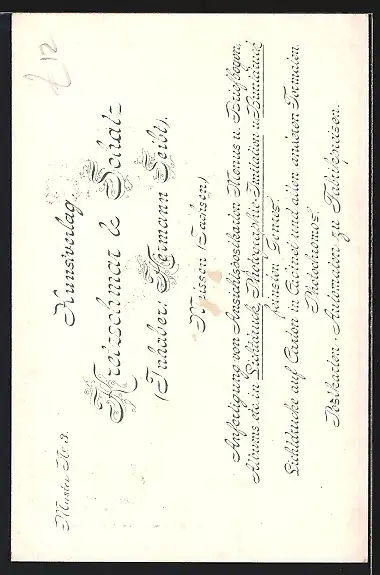 Muster No 19.
Kunstverlag
Kretzschmar & Schatz
(Inhaber: Hermann Seibt),
Meissen (Sachsen)
Anfertigung von Ansichtspostkarten Menus u. Briefbogen,
Albums etc in Lichtdruck, Photographie-Imitation u. Buntdruck
feinsten Genres
Lichtdrucke auf Carton in Cabinet und allen anderen Formaten
Photochromos
Postkarten-Automaten zu Fabrikpreisen.
£12